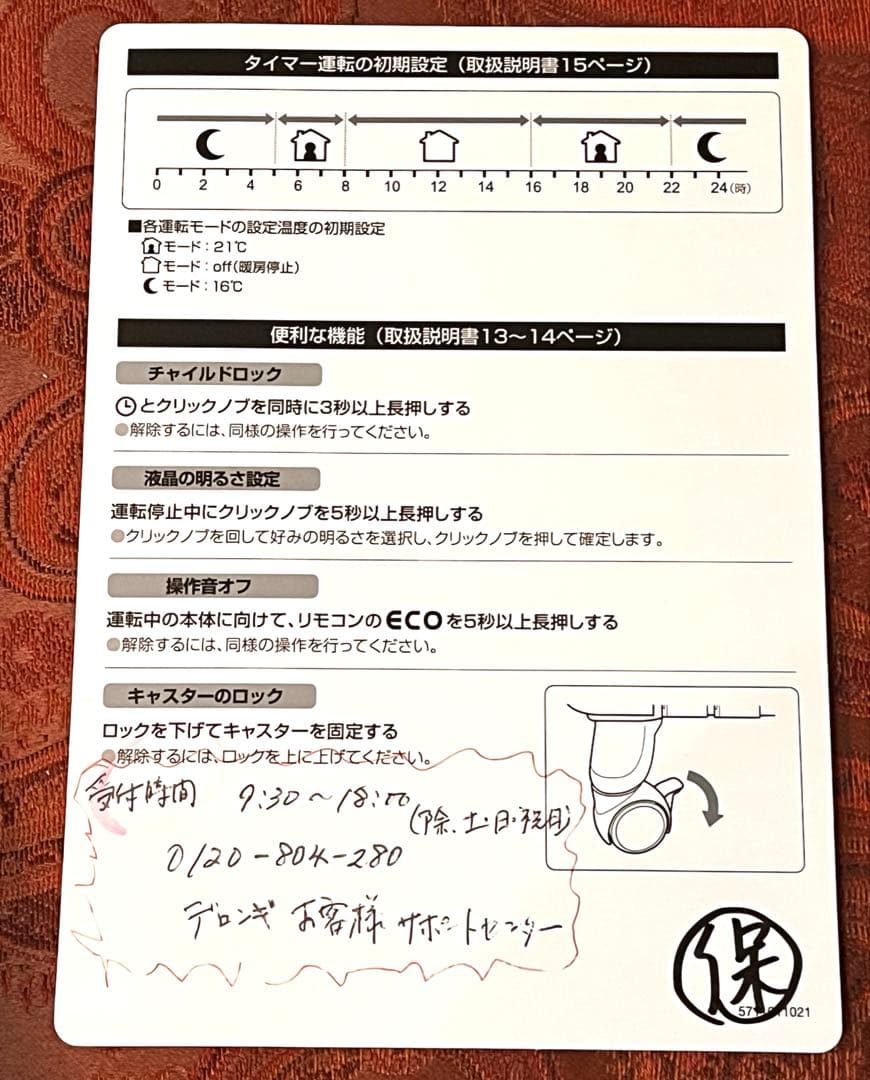 タイマー運転の初期設定(取扱説明書15ページ)
0 2 4 6 8 10 12 14 16 18 20 22 24(時)
■各運転モードの設定温度の初期設定
モード:21℃
モード:off(暖房停止)
モード:16℃
便利な機能(取扱説明書13〜14ページ)
チャイルドロック
とクリックノブを同時に3秒以上長押しする
●解除するには、同様の操作を行ってください。
液晶の明るさ設定
運転停止中にクリックノブを5秒以上長押しする
●クリックノブを回して好みの明るさを選択し、クリックノブを押して確定します。
操作音オフ
運転中の本体に向けて、リモコンのECOを5秒以上長押しする
●解除するには、同様の操作を行ってください。
キャスターのロック
ロックを下げてキャスターを固定する
●解除するには、ロックを上に上げてください。
受付時間 9:30〜18:00
(除、土・日・祝日)
0120-804-280
デロンギ お客様 サポートセンター
保